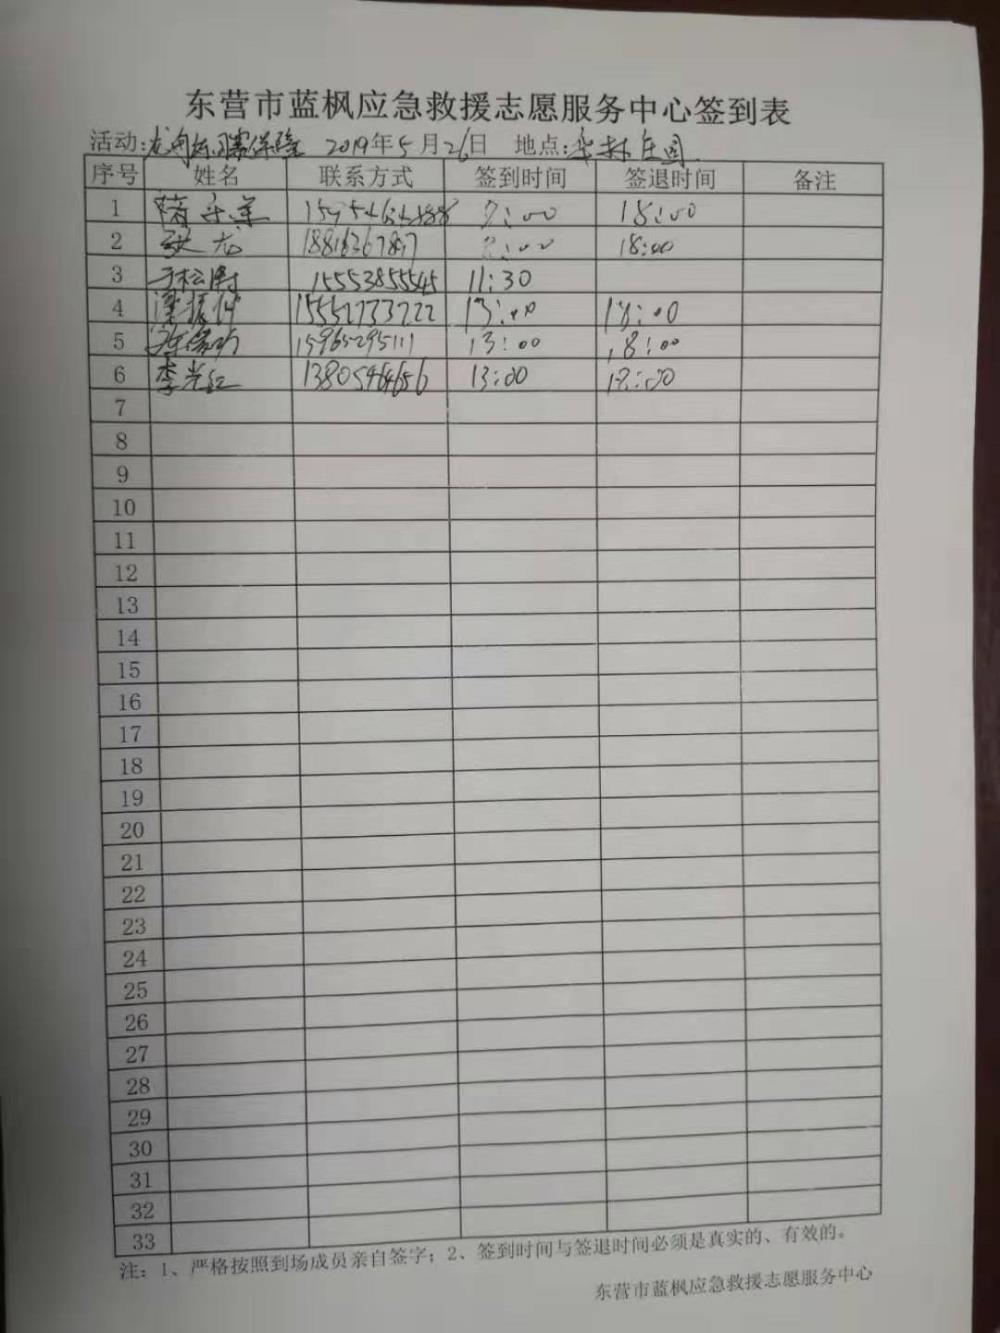 东营市蓝枫应急救援志愿服务中心签到表
活动: 保障 2019年5月26日 地点: 庄园
序号 姓名 联系方式 签到时间 签退时间 备注
1 18:00
2 龙 18:00
3 于松 15553855545 11:30
4 13:00 18:00
5 15965295111 13:00 18:00
6 李光红 13805464656 13:00 18:00
7
8
9
10
11
12
13
14
15
16
17
18
19
20
21
22
23
24
25
26
27
28
29
30
31
32
33
注：1、严格按照到场成员亲自签字；2、签到时间与签退时间必须是真实的、有效的。
东营市蓝枫应急救援志愿服务中心